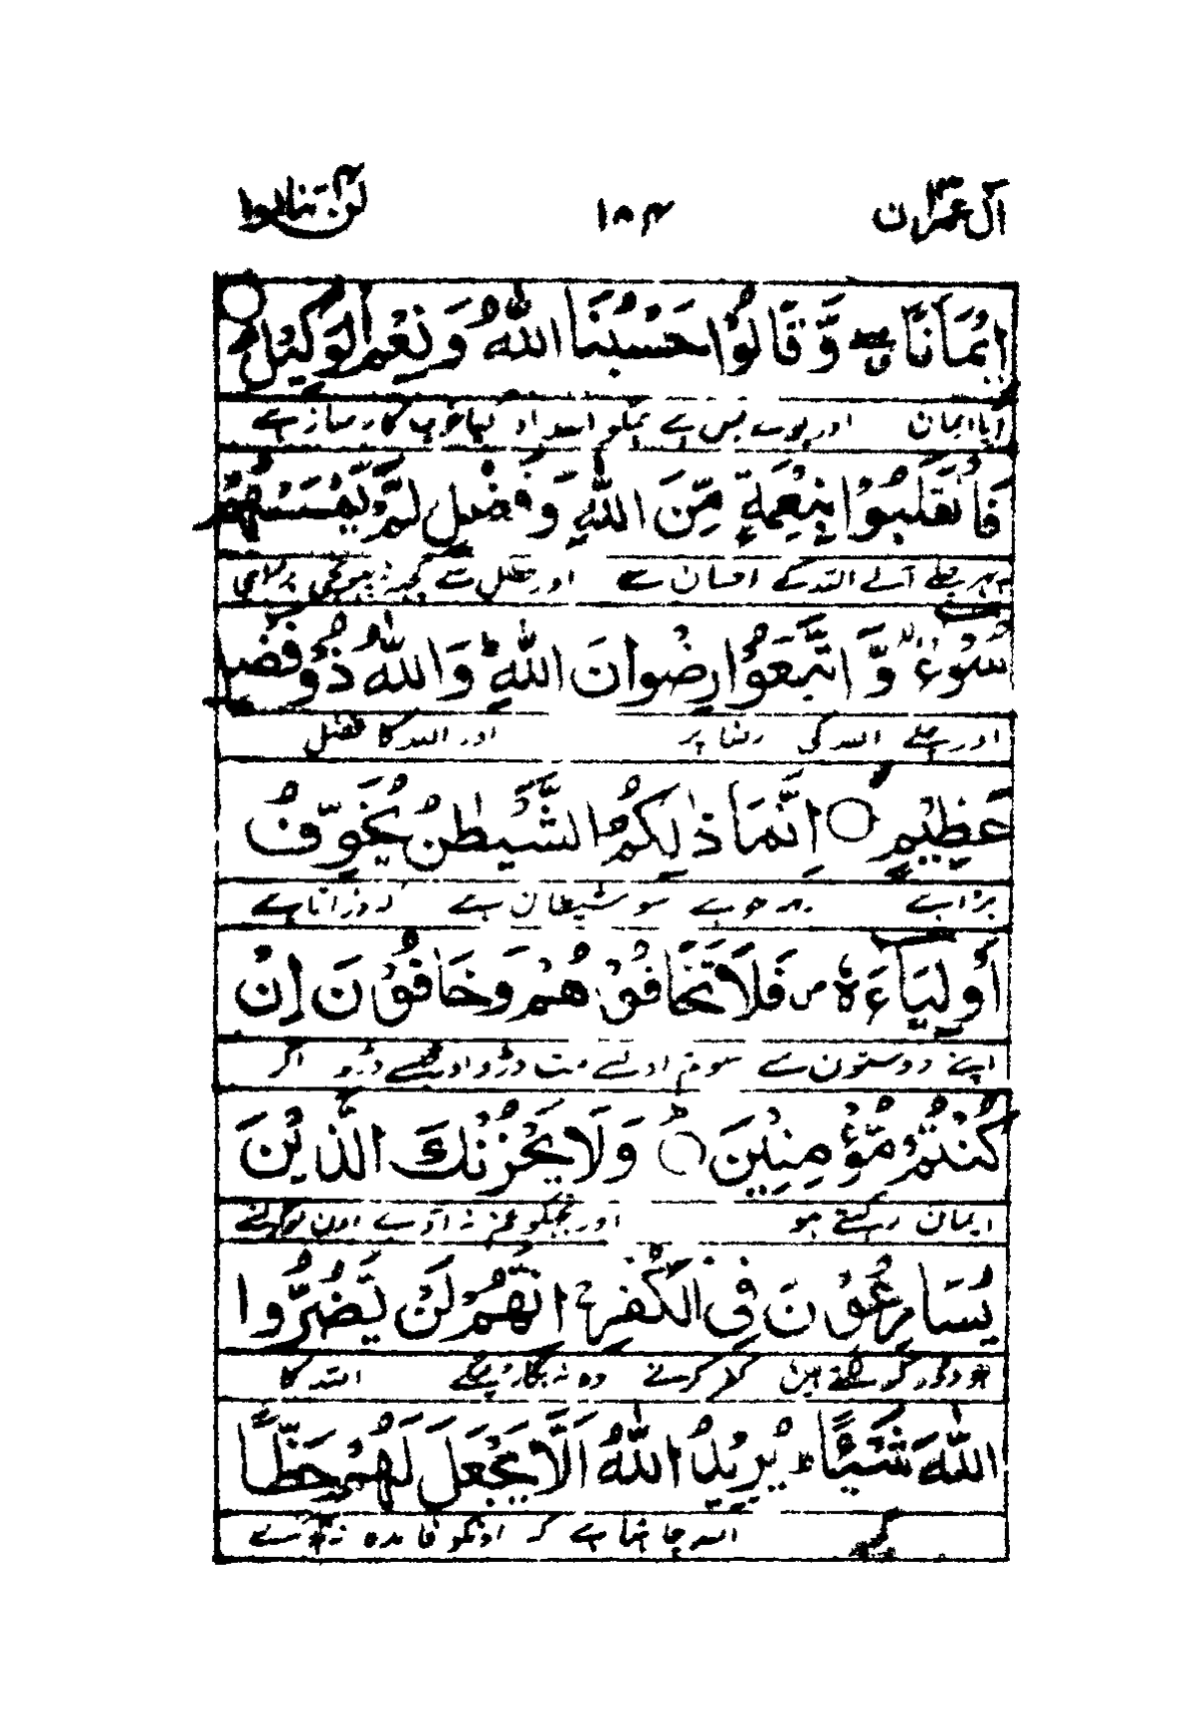 آل عمران ۳ ۱۸۴ لن تنالوا ۴
اِيْمَانًا ۖۗ وَّ قَالُوْا حَسْبُنَا اللّٰهُ وَ نِعْمَ الْوَكِيْلُ ○
ایمان اور بس ہے ہمکو اللہ اور کیا خوب کارساز ہے
فَانْقَلَبُوْا بِنِعْمَةٍ مِّنَ اللّٰهِ وَ فَضْلٍ لَّمْ يَمْسَسْهُمْ
چلے آئے اللہ کے احسان سے اور فضل سے کچھ نہ پہونچی برائی
سُوْٓءٌ ۙ وَّ اتَّبَعُوْا رِضْوَانَ اللّٰهِ ؕ وَ اللّٰهُ ذُوْ فَضْلٍ
اور چلے اللہ کی رضا پر اور اللہ کا فضل
عَظِيْمٍ ○ اِنَّمَا ذٰلِكُمُ الشَّيْطٰنُ يُخَوِّفُ
بڑا ہے یہہ جو ہے سو شیطان ہے کہ ڈراتا ہے
اَوْلِيَآءَهٗ ۪ فَلَا تَخَافُوْهُمْ وَ خَافُوْنِ اِنْ
اپنے دوستون سے سو تم اونسے مت ڈرو اور مجھسے ڈرو اگر
كُنْتُمْ مُّؤْمِنِيْنَ ○ وَ لَا يَحْزُنْكَ الَّذِيْنَ
ایمان رکھتے ہو اور تجھکو غم نہ آوے اون لوگونسے
يُسَارِعُوْنَ فِي الْكُفْرِ ۚ اِنَّهُمْ لَنْ يَّضُرُّوا
جو دوڑ کر کفر کرنے وہ نہ بگاڑینگے اللہ کا
اللّٰهَ شَيْـًٔا ؕ يُرِيْدُ اللّٰهُ اَلَّا يَجْعَلَ لَهُمْ حَظًّا
کچھ اللہ چاہتا ہے کہ اونکو فائدہ نہ دے